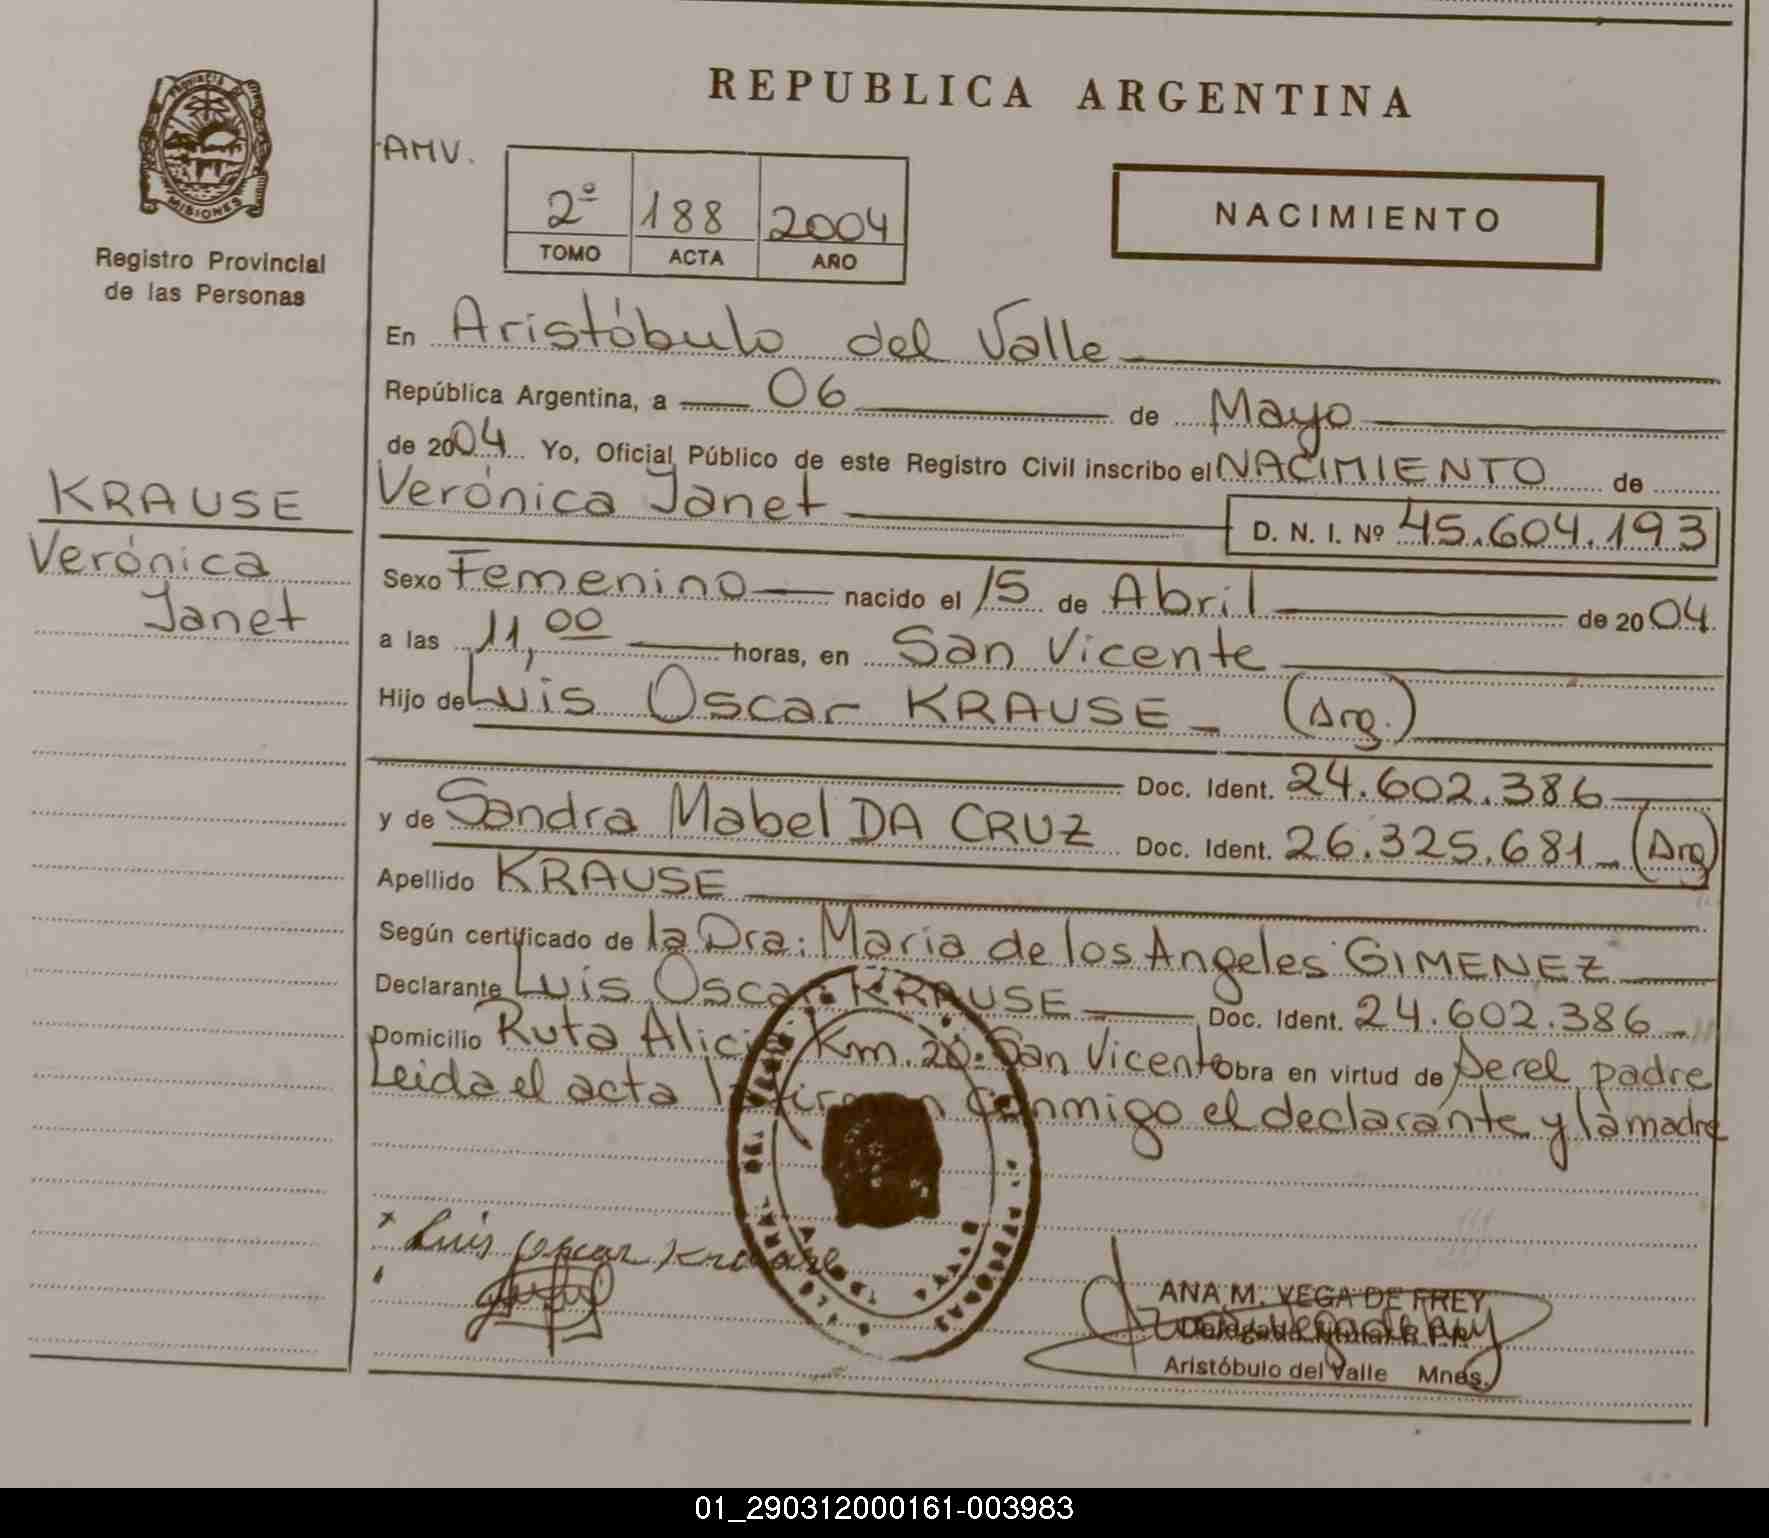 REPUBLICA ARGENTINA
PROVINCIA DE
MISIONES
Registro Provincial
de las Personas
AMV.
2º 188 2004
TOMO ACTA AÑO
NACIMIENTO
En Aristóbulo del Valle
República Argentina, a 06 de Mayo
de 2004 Yo, Oficial Público de este Registro Civil inscribo el NACIMIENTO de
KRAUSE
Verónica
Janet
Verónica Janet D. N. I. Nº 45.604.193
Sexo Femenino nacido el 15 de Abril de 2004
a las 11,00 horas, en San Vicente
Hijo de Luis Oscar KRAUSE (Arg.)
Doc. Ident. 24.602.386
y de Sandra Mabel DA CRUZ Doc. Ident. 26.325.681 (Arg)
Apellido KRAUSE
Según certificado de la Dra: Maria de los Angeles GIMENEZ
Declarante Luis Oscar KRAUSE Doc. Ident. 24.602.386
Domicilio Ruta Alicia Km. 20. San Vicente obra en virtud de ser el padre
Leida el acta la firman conmigo el declarante y la madre
Luis Oscar Krause
ANA M. VEGA DE FREY
Delegada Titular R.P.P.
Aristóbulo del Valle Mnes.
01_290312000161-003983